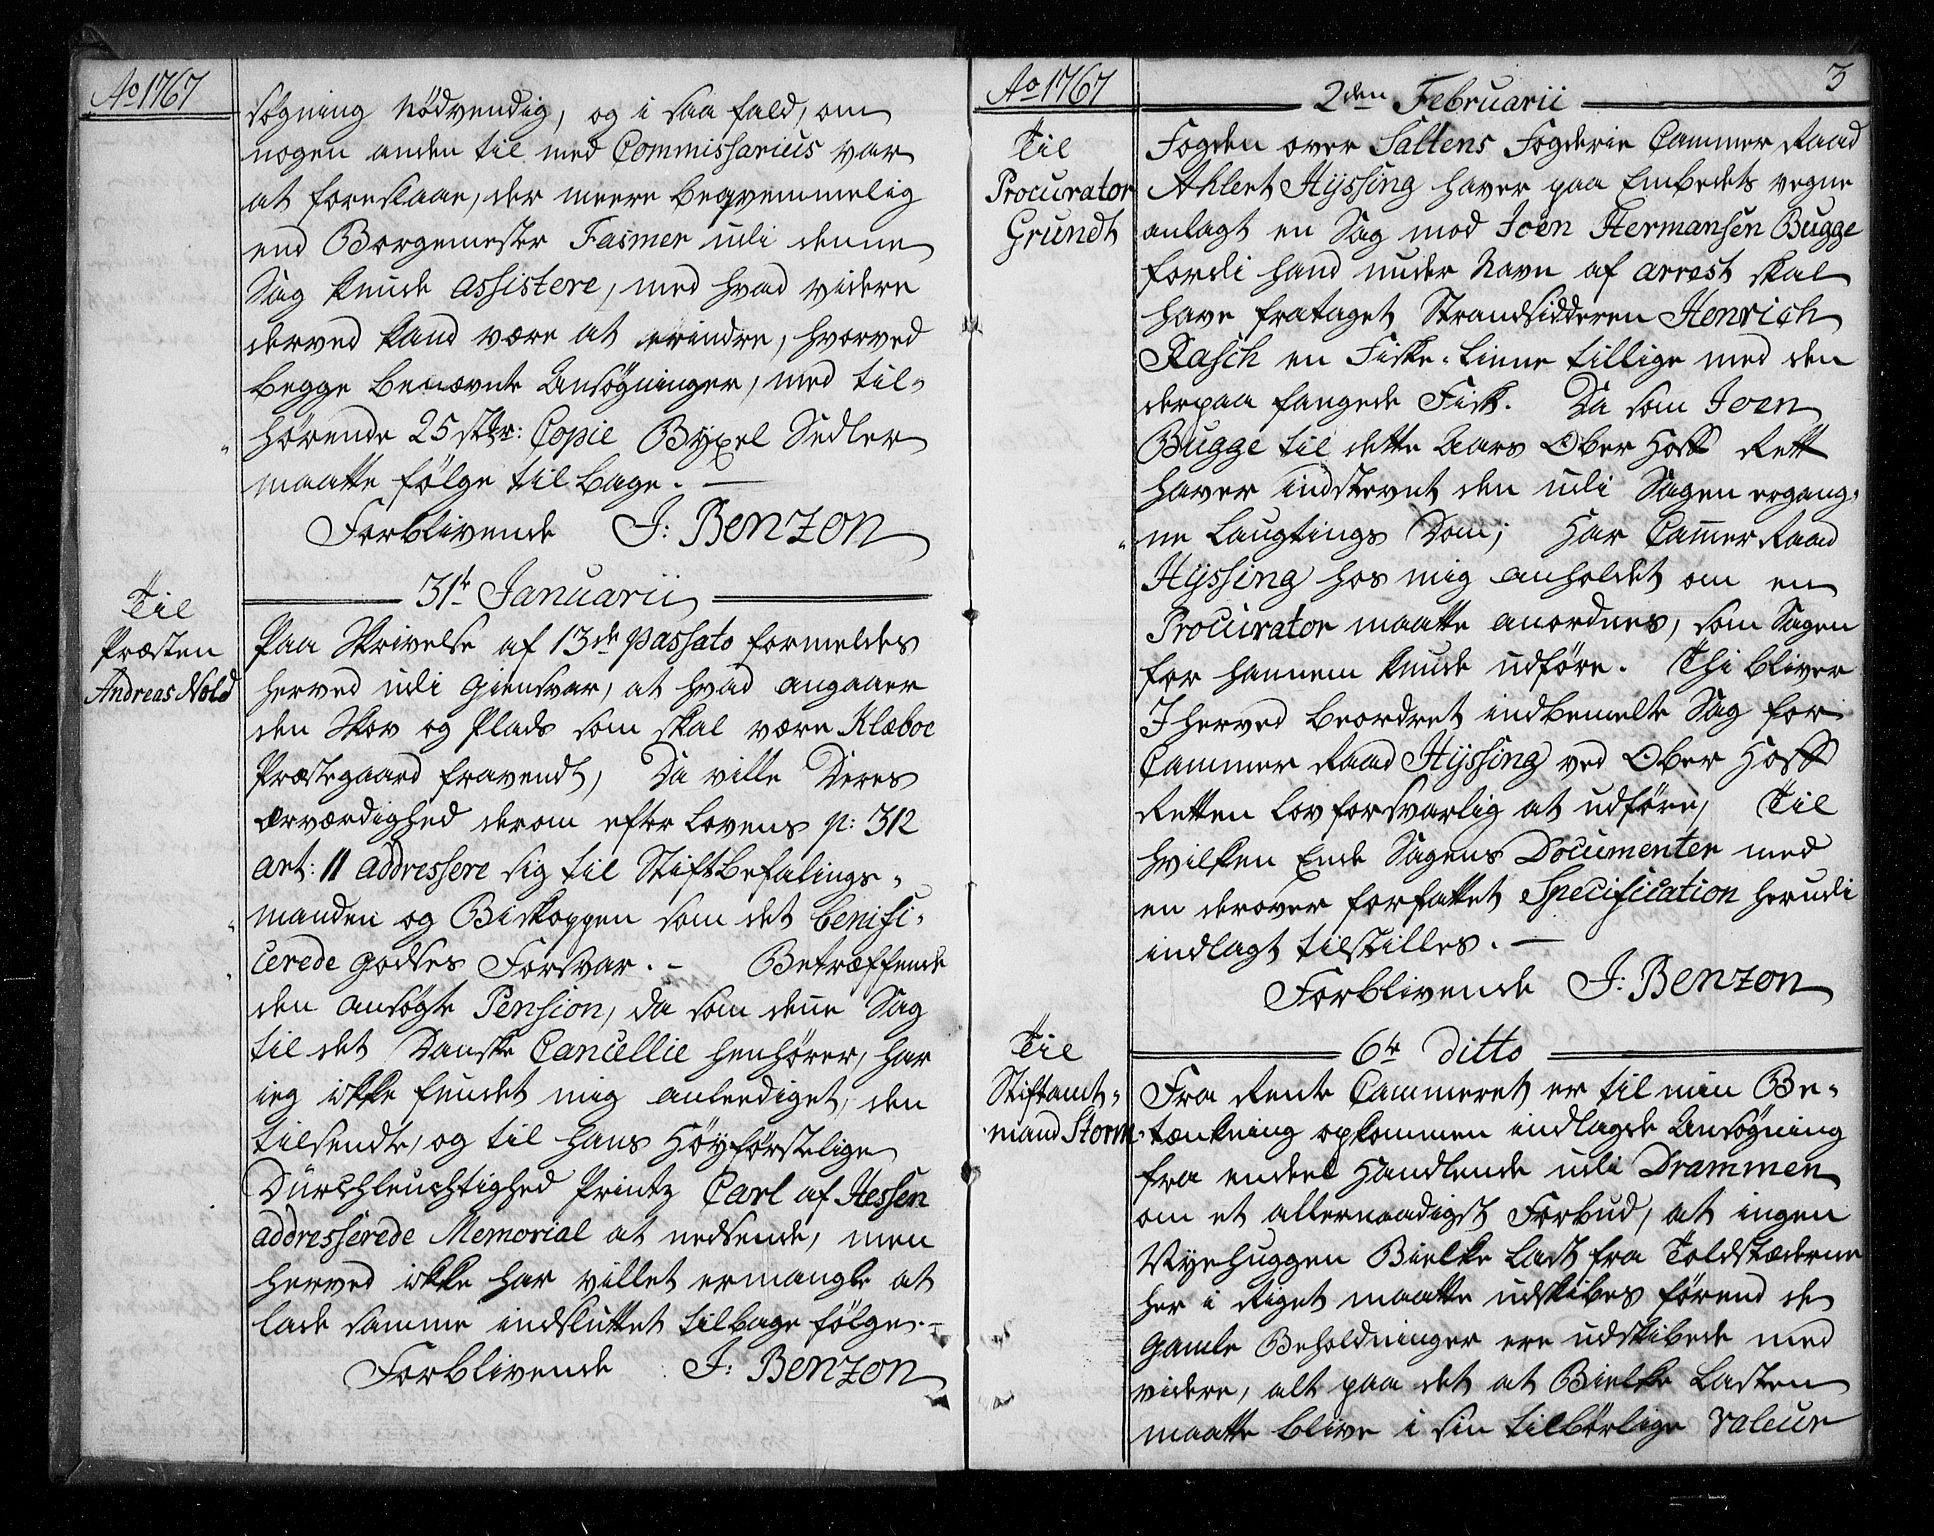 Ao 1767
søgning nödvendig, og i saa fald, om
nogen anden til med Commissarius var
at foreslaae, der meere beqvemmelig
end Borgemester Fasmer udi denne
Sag kunde assistere, med hvad videre
derved kand være at erindre, hvorved
begge benævnte Ansøgninger, med til-
hörende 25 stkr: Copie Býxel Sedler
maatte fölge til bage. —
Forblivende J: Benzon
31te Januarii
Til
Præsten
Andreas Nold
Paa Skrivelse af 13de passato formeldes
herved udi giensvar, at hvad angaaer
den Skov og Plads som skal være Klæboe
Præstegaard fravendt, Da ville Deres
Ærværdighed derom efter Lovens p: 312
art: 11 addressere sig til Stiftbefalings-
manden og Biskoppen som det benifi-
cerede godses Forsvar. - Betræffende
den ansøgte Pension, da som denne Sag
til det Danske Cancellie henhörer, har
ieg ikke fundet mig anleediget, den
tilsendte, og til Hans Höyförstelige
Dürchleuchtighed Printz Carl af Hessen
addresserede Memorial at nedsende, men
herved ikke har villet ermangle at
lade samme indsluttet tilbage fölge. -
Forblivende J: Benzon
Ao 1767
3
2den Februarii
Til
Procurator
Grundt
Fogden over Saltens Fogderie Cammer Raad
Ahlert Hÿssing haver paa Embedets vegne
anlagt en Sag mod Joen Hermansen Bugge
fordi hand under Navn af arrest skal
have frataget Strandsidderen Henrich
Rasch en Fiske-Linne tillige med den
derpaa fangede Fisk. Da som Joen
Bugge til dette Aars Ober Hoff Rett
haver indstevnt den udi Sagen ergang-
ne Laugtings Dom; Har Cammer Raad
Hÿssing hos mig anholdet om en
Procurator maatte anordnes, som Sagen
for hannem kunde udföre. Thi bliver
I herved beordret indbemelte Sag for
Cammer Raad Hÿssing ved Ober Hoff
Retten Lovforsvarlig at udföre, Til
hvilken Ende Sagens Documenter med
en derover forfattet Specification herudi
indlagt tilstilles. —
Forblivende J: Benzon
6te ditto
Til
Stiftamt-
mand Storm
Fra Rente Cammeret er til min Be-
tænkning opkommen indlagde Ansøgning
fra endeel Handlende udi Drammen
om et allernaadigst Forbud, at ingen
Nyehuggen Bielke Last fra Toldstæderne
her i Riget maatte udskibes förend de
gamle Beholdninger ere udskibede med
videre, alt paa det at Bielke Lasten
maatte blive i sin tilbörlige valeur